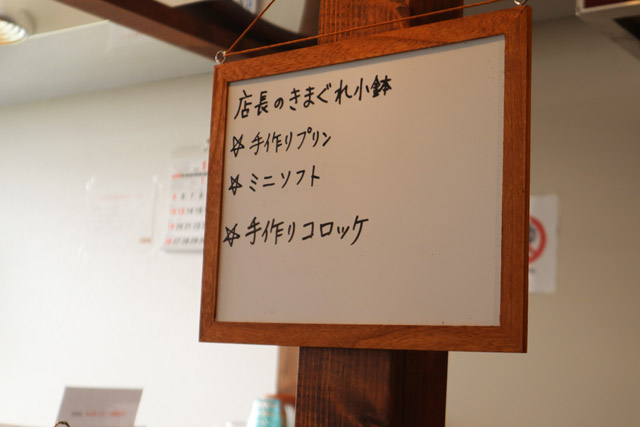 店長のきまぐれ小鉢
☆手作りプリン
☆ミニソフト
☆手作りコロッケ